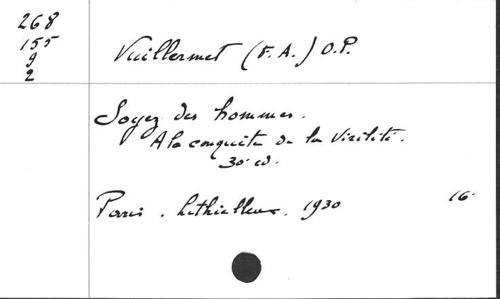 268
155
9
2
Vuillermet (F. A.) O.P.
Soyez des hommes.
A la conquête de la Virilité.
30e éd.
Paris. Lethielleux. 1930 16°